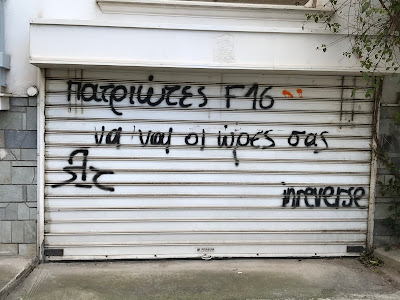 πατριώτες F16
να 'ναι οι ώρες σας
inreverse